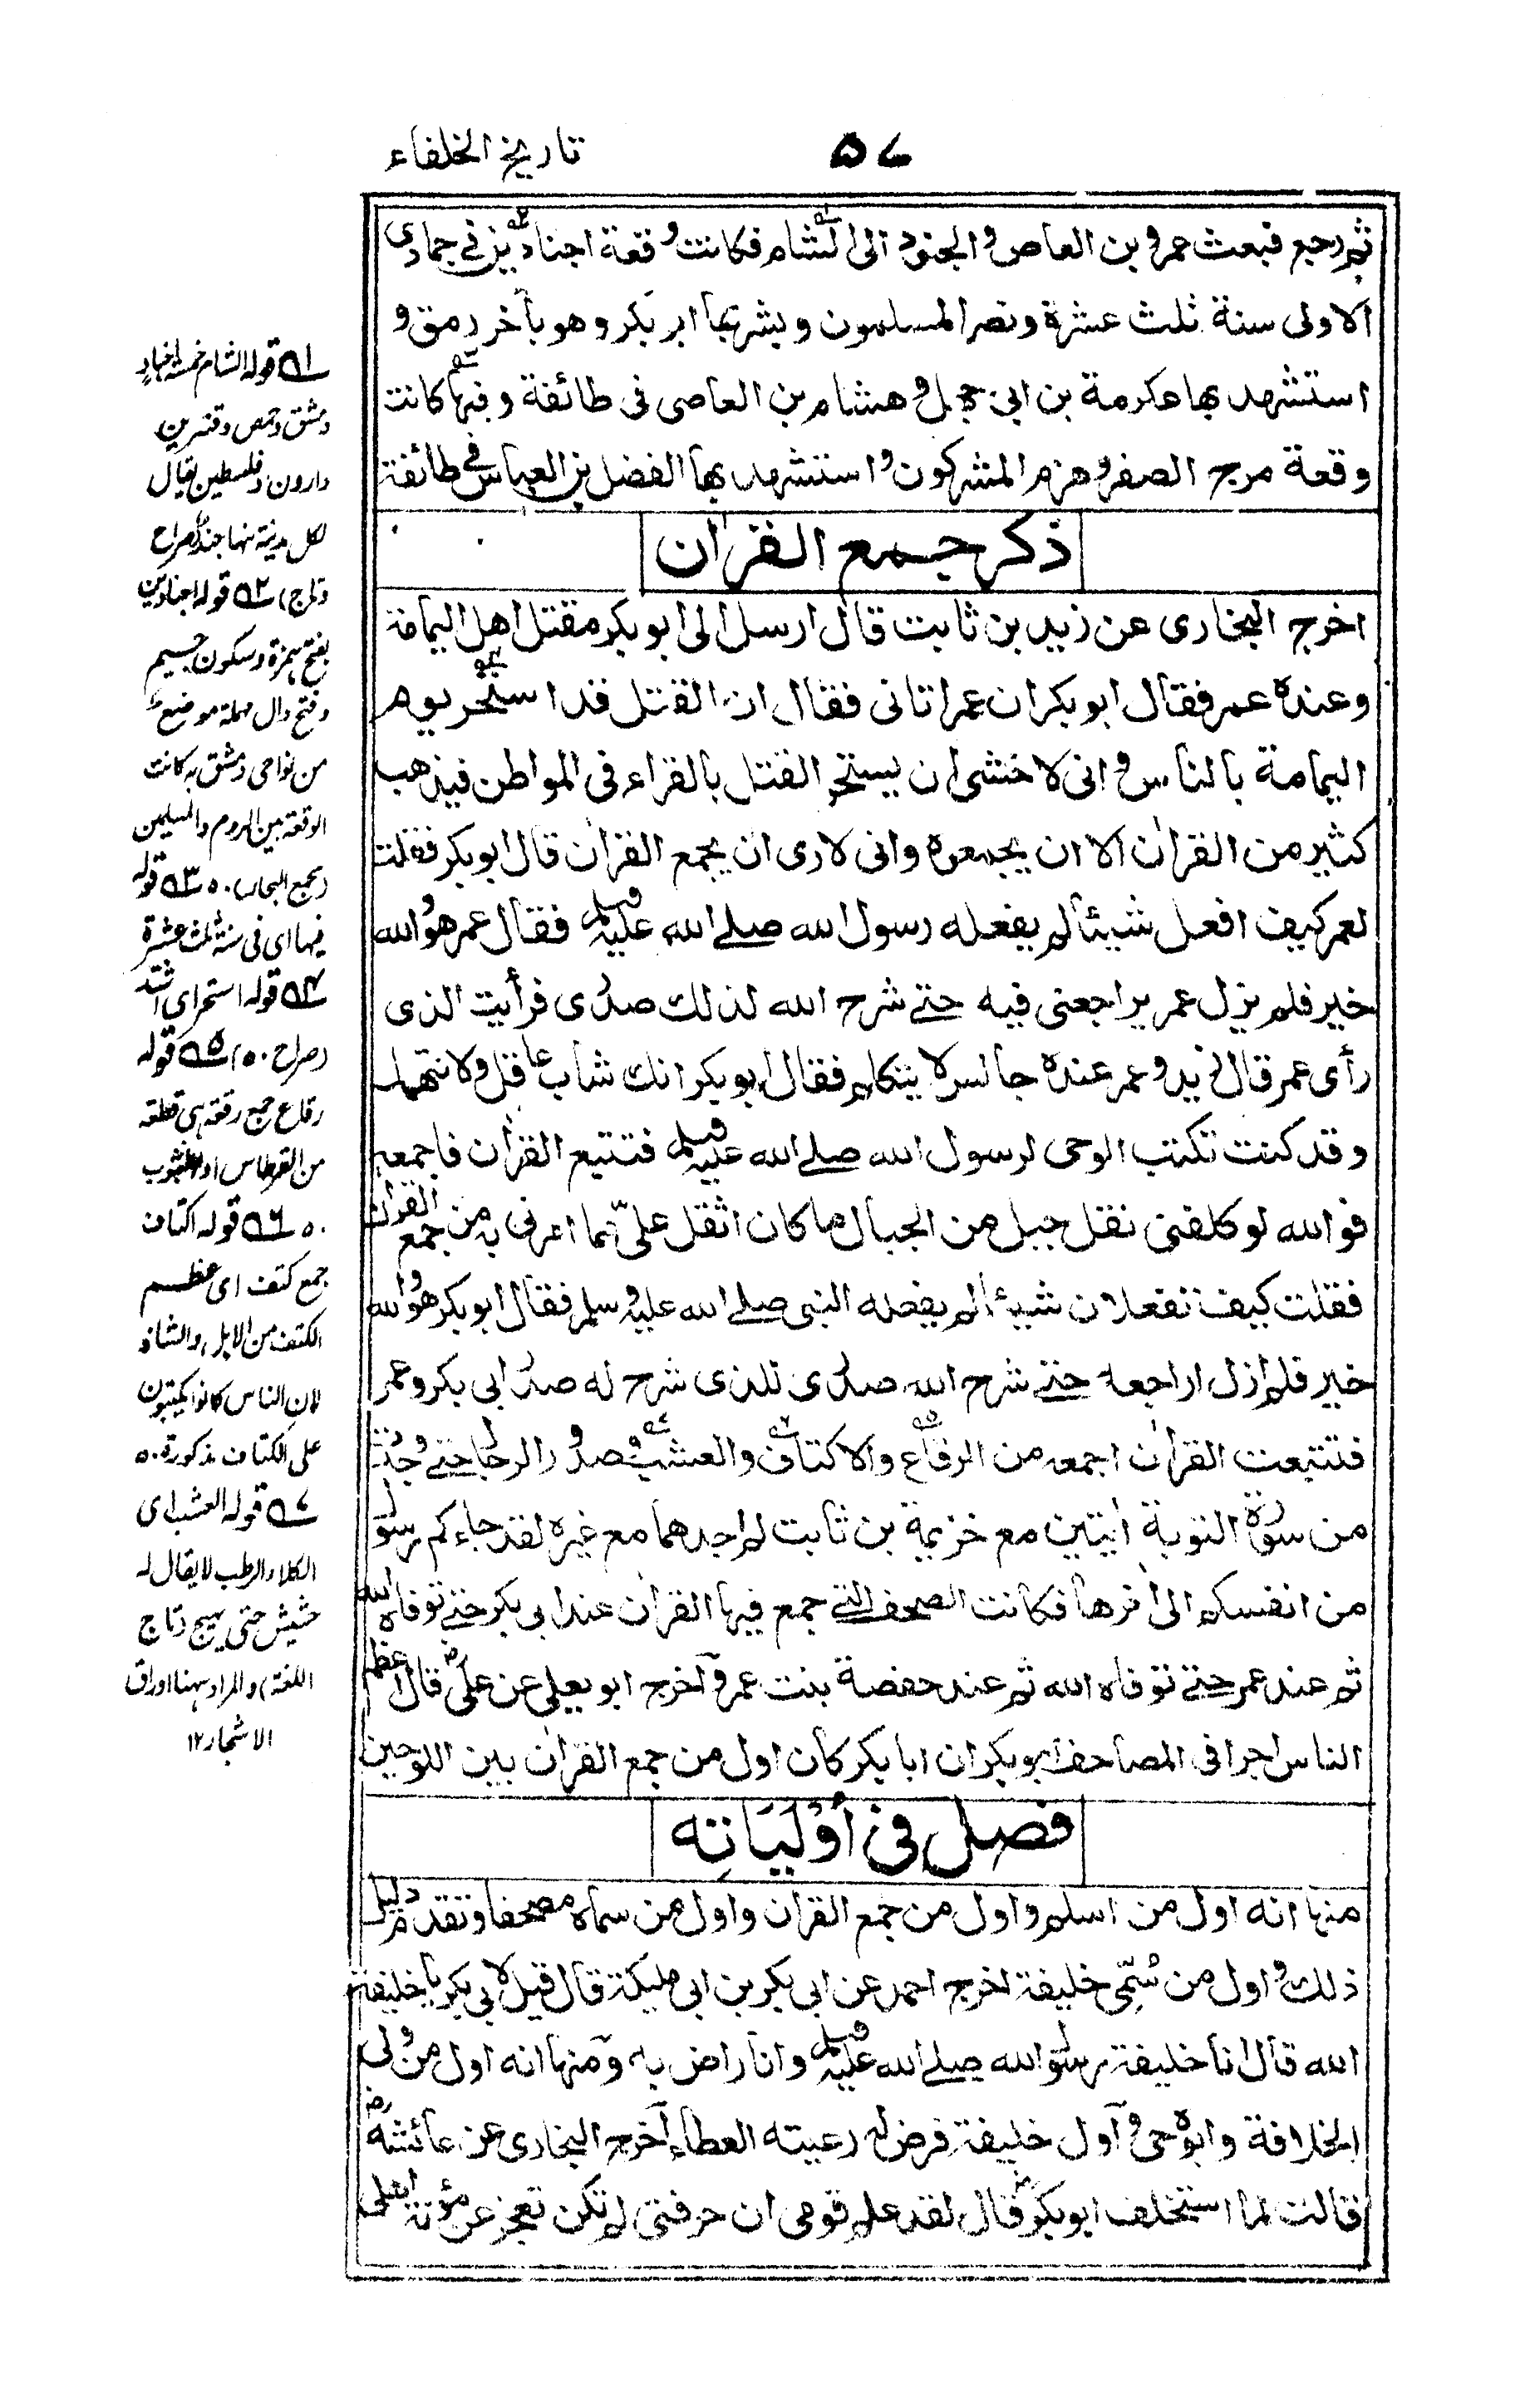 تاريخ الخلفاء
۵۷
ثم رجع فبعث عمرو بن العاص والجنود الى الشام فكانت وقعة اجنادين في جمادى
الاولى سنة ثلث عشرة ونصر المسلمون وبشر بها ابو بكر وهو بآخر رمق و
استشهد بها عكرمة بن ابي جهل وهشام بن العاصى فى طائفة وفيها كانت
وقعة مرج الصفر وهزم المشركون واستشهد بها الفضل بن العباس في طائفة
ذكر جمع القرآن
اخرج البخارى عن زيد بن ثابت قال ارسل الى ابو بكر مقتل اهل اليمامة
وعنده عمر فقال ابو بكر ان عمر اتانى فقال ان القتل قد استحر يوم
اليمامة بالناس وانى لاخشى ان يستحر القتل بالقراء فى المواطن فيذهب
كثير من القرآن الا ان يجمعوه وانى لارى ان يجمع القرآن قال ابو بكر فقلت
لعمر كيف افعل شيئا لم يفعله رسول الله صلے الله عليه وسلم فقال عمر هو والله
خير فلم يزل عمر يراجعنى فيه حتے شرح الله لذلك صدرى فرأيت الذى
رأى عمر قال زيد وعمر عنده جالس لا يتكلم فقال ابو بكر انك شاب عاقل ولا نتهمك
وقد كنت تكتب الوحى لرسول الله صلے الله عليه وسلم فتتبع القرآن فاجمعه
فوالله لو كلفنى نقل جبل من الجبال ما كان اثقل علىّ مما امرنى به من جمع القرآن
فقلت كيف تفعلان شيئا لم يفعله النبى صلے الله عليه وسلم فقال ابو بكر هو والله
خير فلم ازل اراجعه حتے شرح الله صدرى للذى شرح له صدر ابى بكر وعمر
فتتبعت القرآن اجمعه من الرقاع والاكتاف والعشب وصدور الرجال حتے وجدت
من سورة التوبة ايتين مع خزيمة بن ثابت لم اجدهما مع غيره لقد جاءكم رسول
من انفسكم الى اخرها فكانت الصحف التے جمع فيها القرآن عند ابى بكر حتے توفاه الله
ثم عند عمر حتے توفاه الله ثم عند حفصة بنت عمر وآخرج ابو يعلى عن علىؓ قال اعظم
الناس اجرا فى المصاحف ابو بكر ان ابا بكر كان اول من جمع القرآن بين اللوحين
فصل فى أَوَّلِيَاتِه
منها انه اول من اسلم واول من جمع القرآن واول من سماه مصحفا وتقدم دليل
ذلك واول من سُمِّى خليفة اخرج احمد عن ابى بكر بن ابى مليكة قال قيل لابى بكر يا خليفة
الله قال انا خليفة رسول الله صلے الله عليه وسلم وانا راض به ومنها انه اول من ولى
الخلافة وابوه حى وآول خليفة فرض له رعيته العطاء آخرج البخارى عن عائشةؓ
قالت لما استخلف ابو بكرؓ قال لقد علم قومى ان حرفتى لم تكن تعجز عن مؤنة اهلى
۱ قوله الشام خمسة اجناد
دمشق وحمص وقنسرين
واردن وفلسطين يقال
لكل مدينة منها جند (صراح
وتاج) ۲ قوله اجنادين
بفتح همزة وسكون جيم
وفتح دال مهملة موضع
من نواحى دمشق به كانت
الوقعة بين الروم والمسلمين
(مجمع البحار) ۳ قوله
فيها اى فى سنة ثلث عشرة
۴ قوله استحر اى اشتد
(صراح) ۵ قوله
رقاع جمع رقعة هى قطعة
من القرطاس او الثوب
۶ قوله اكتاف
جمع كتف اى عظم
الكتف من الابل والشاة
لان الناس كانوا يكتبون
على الكتاف مذكورة
۷ قوله العشب اى
الكلاء الرطب لا يقال له
حشيش حتى يهيج (تاج
اللغة) والمراد ههنا اوراق
الاشجار ۱۲